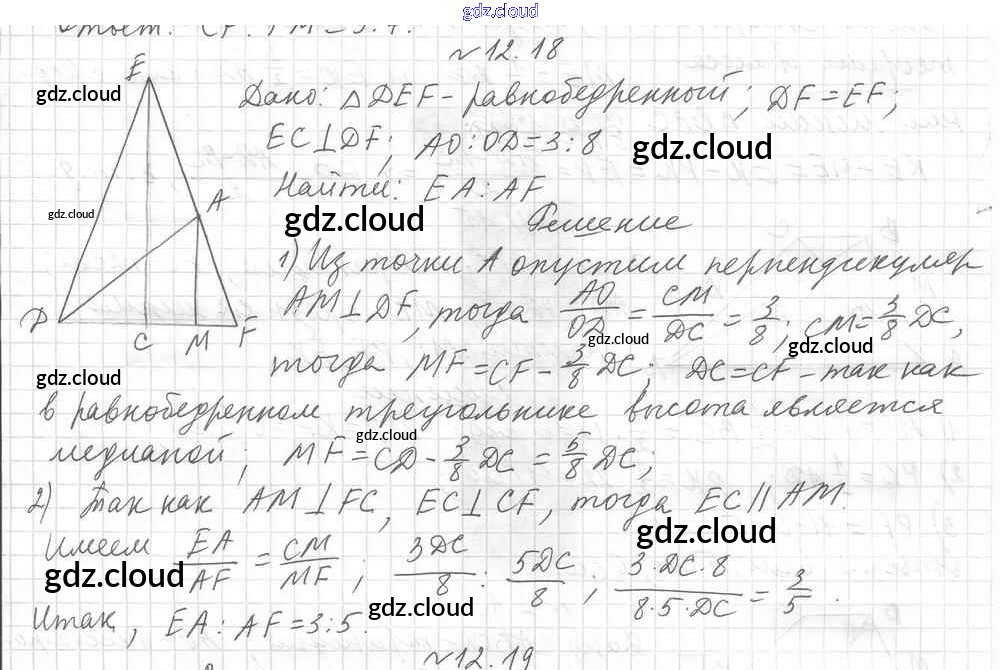 gdz.cloud
Ответ: CF : FM = 5:4.
№12.18
E
gdz.cloud
Дано: △DEF - равнобедренный; DF = EF;
EC⊥DF; AO:OD = 3:8
gdz.cloud
Найти: EA : AF
gdz.cloud
A
gdz.cloud
Решение
1) Из точки A опустим перпендикуляр
AM⊥DF, тогда AO/OD = CM/DC = 3/8; CM = 3/8 DC,
D C M F
gdz.cloud
gdz.cloud
тогда MF = CF - 3/8 DC; DC = CF - так как
gdz.cloud
в равнобедренном треугольнике высота является
gdz.cloud
медианой; MF = CD - 3/8 DC = 5/8 DC;
2) Так как AM⊥FC, EC⊥CF, тогда EC∥AM.
gdz.cloud
Имеем EA/AF = CM/MF; 3DC/8 : 5DC/8; 3·DC·8/8·5·DC = 3/5.
gdz.cloud
gdz.cloud
Итак, EA : AF = 3:5.
№12.19